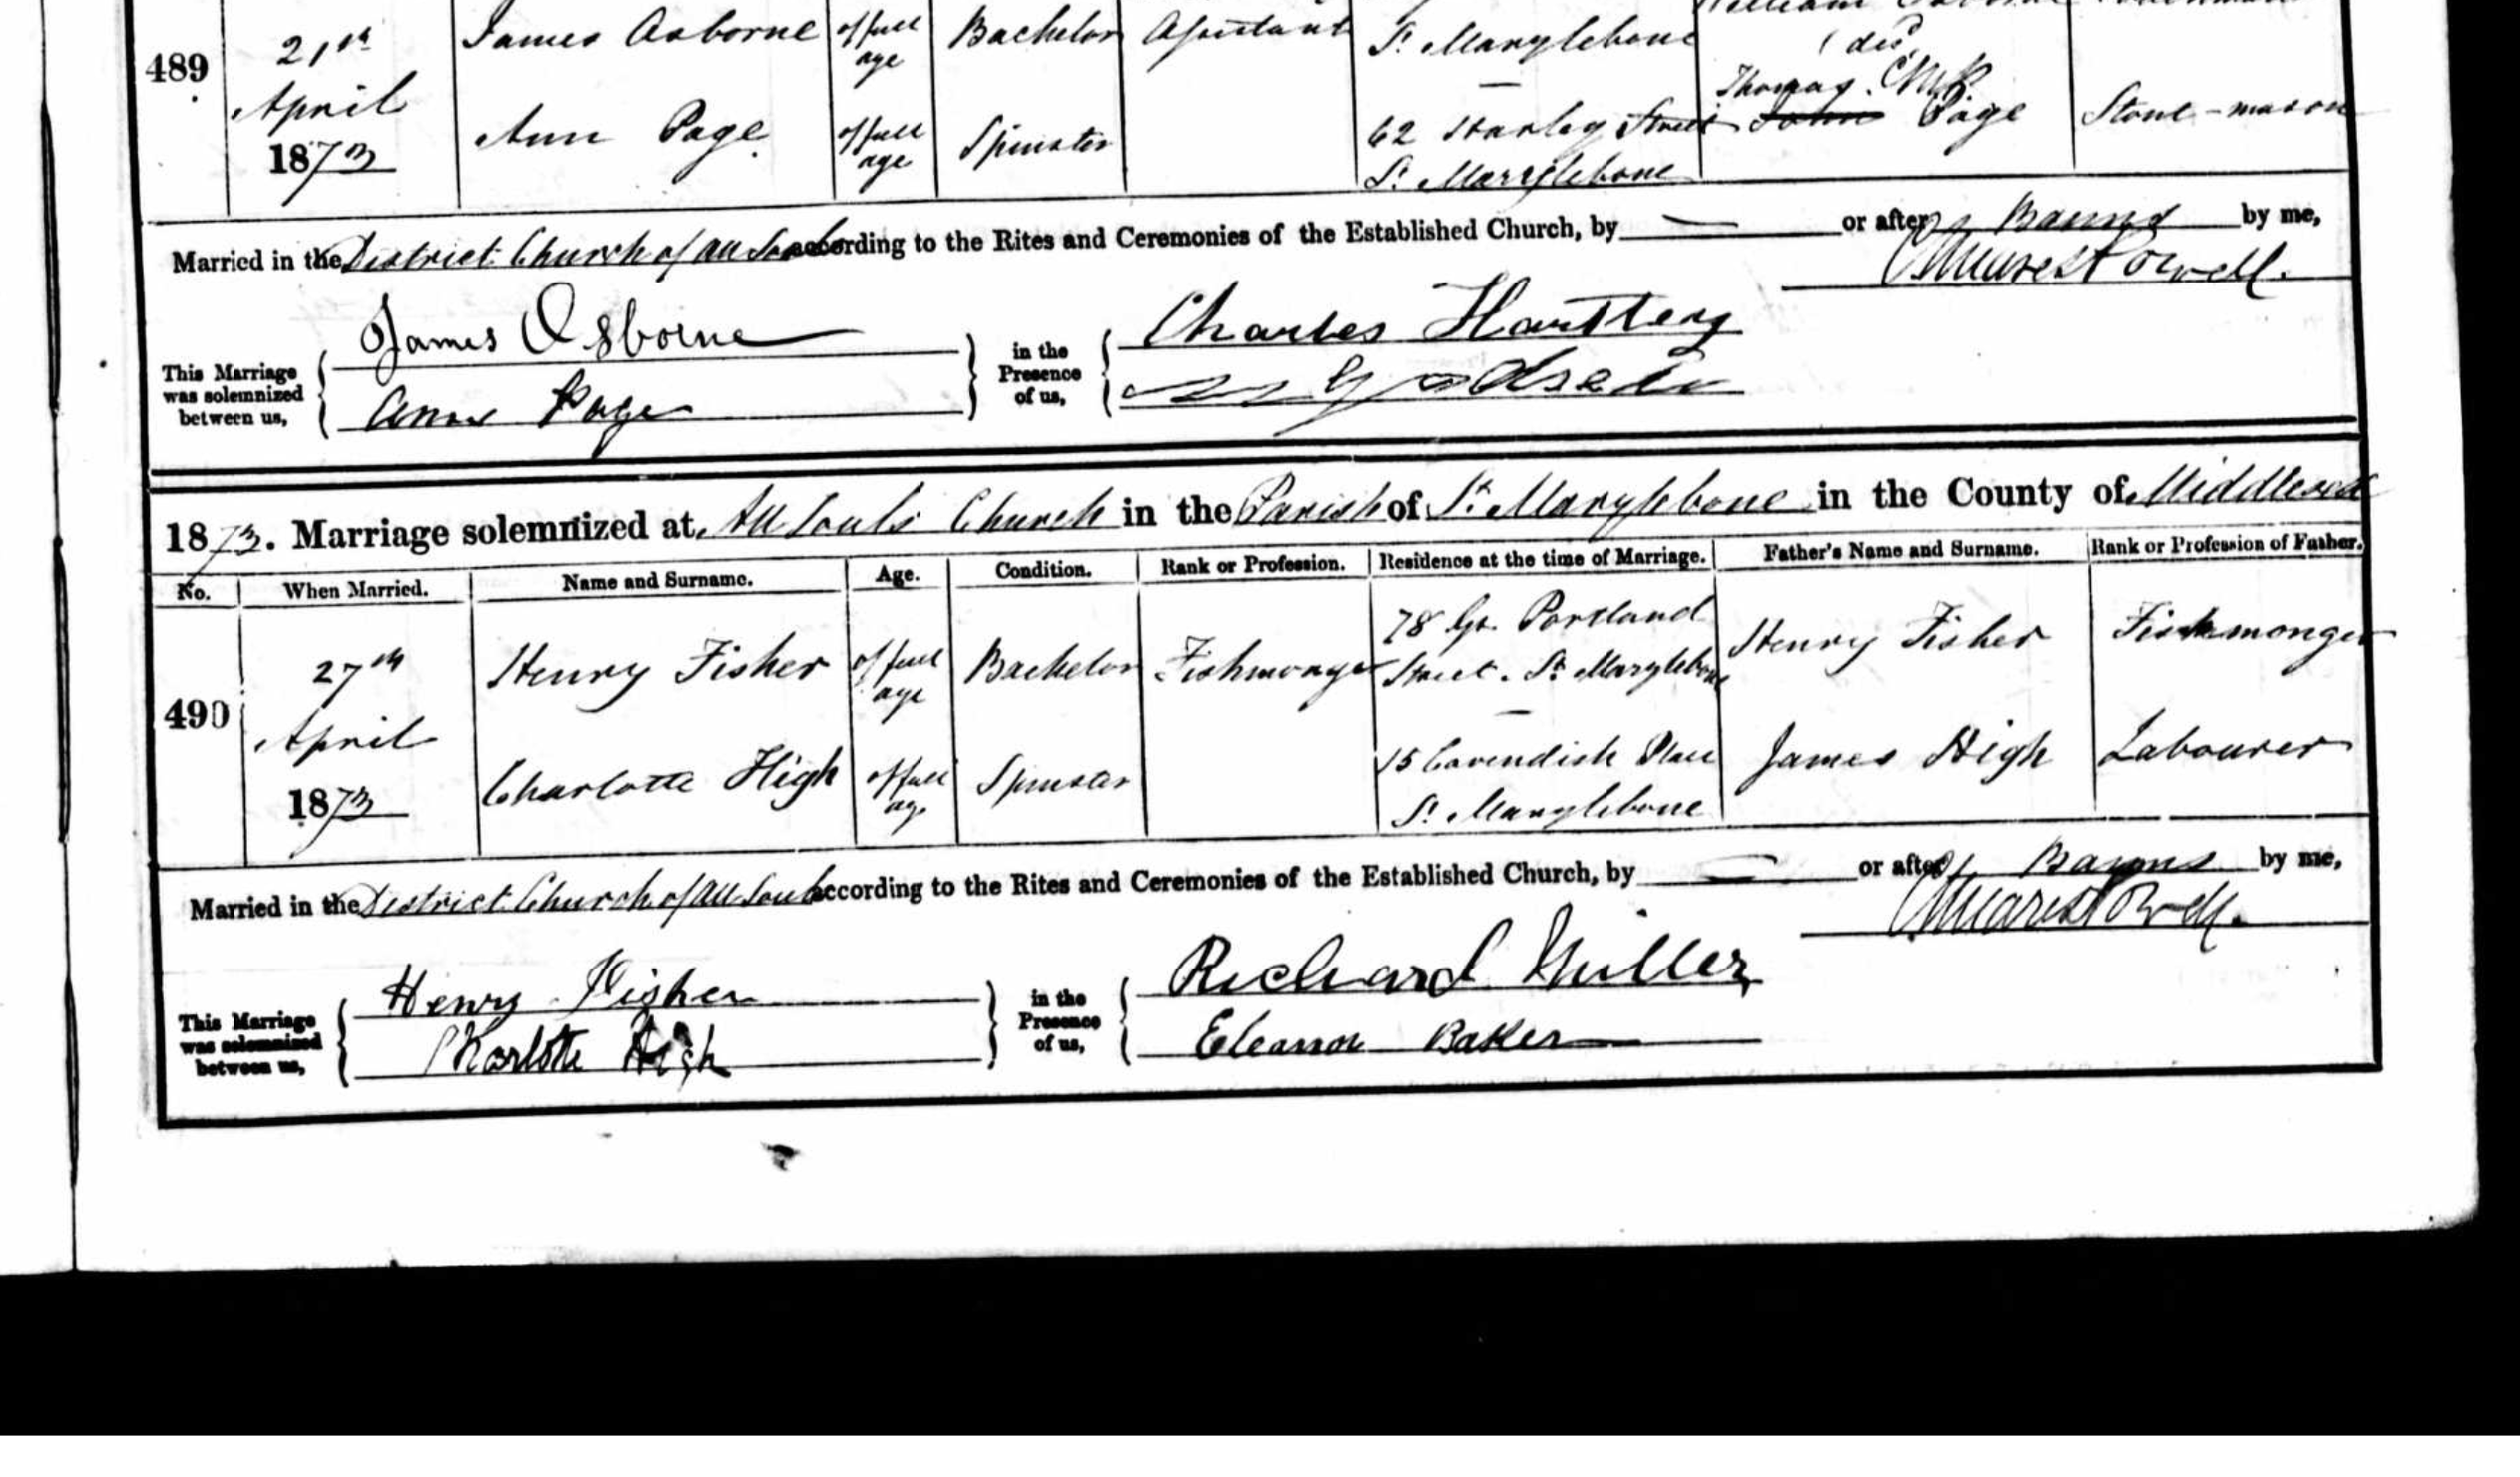 489
21st
April
1873
James Osborne
of full
age
Bachelor
Assistant
St Marylebone
William
(decd)
Ann Page
of full
age
Spinster
62 Stanley Street
St Marylebone
Thomas C.M.P.
John Page
Stone-mason
Married in the District Church of All Souls according to the Rites and Ceremonies of the Established Church, by or after Banns by me,
This Marriage
was solemnized
between us,
James Osborne
Ann Page
in the
Presence
of us,
Charles
1873. Marriage solemnized at All Souls Church in the Parish of St Marylebone in the County of Middlesex
No. When Married. Name and Surname. Age. Condition. Rank or Profession. Residence at the time of Marriage. Father's Name and Surname. Rank or Profession of Father.
490
27th
April
1873
Henry Fisher
of full
age
Bachelor
Fishmonger
78 Gt. Portland
Street. St Marylebone
Henry Fisher
Fishmonger
Charlotte High
of full
age
Spinster
15 Cavendish Place
St Marylebone
James High
Labourer
Married in the District Church of All Souls according to the Rites and Ceremonies of the Established Church, by or after Banns by me,
This Marriage
was solemnized
between us,
Henry Fisher
Charlotte High
in the
Presence
of us,
Richard Miller
Eleanor Baker